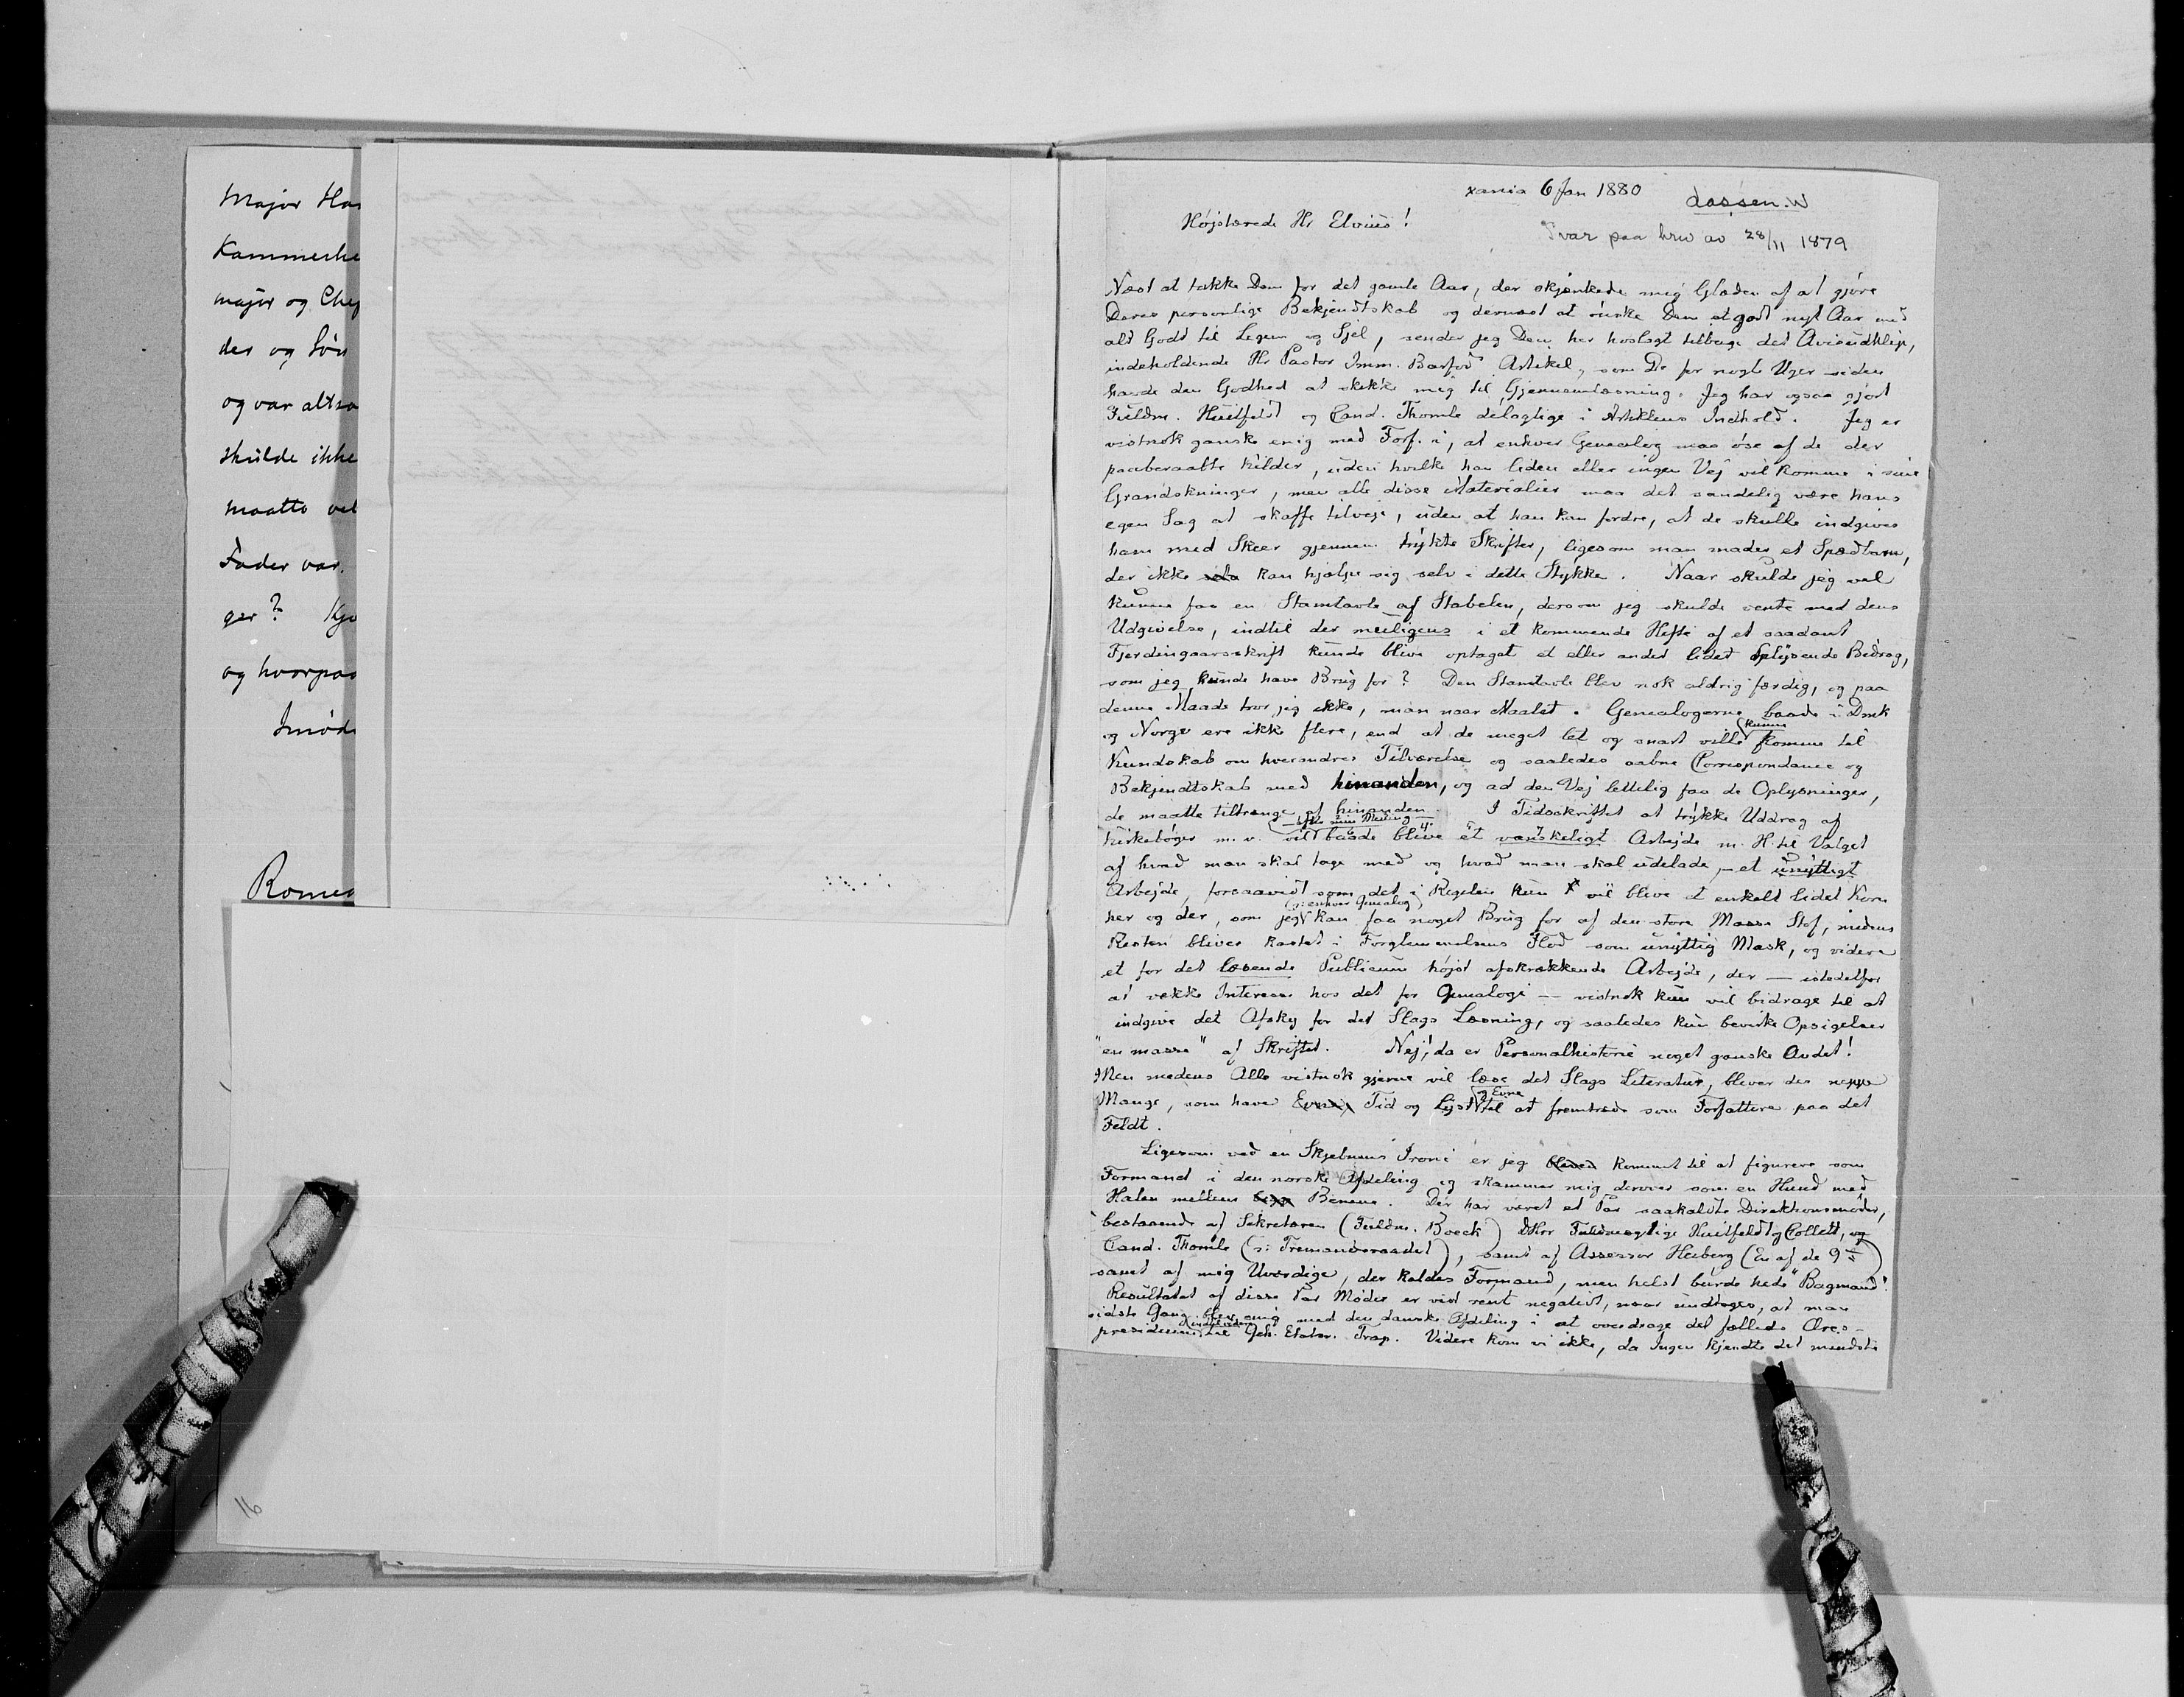 Major
Kammerhe
major og Chef
der og Søn
og var altsa
skulde ikke
maatte vel
Fader var.
ger?
og hvorpaa
Imød
16
xania 6 Jan 1880
Lassen. W
Højstærede Hr Elvius!
Svar paa brev av 28/11 1879
Næst at takke Dem for det gamle Aar, der skjænkede mig Glæden af at gjøre
Deres personlige Bekjendtskab og dernæst at ønske Dem et godt nyt Aar med
alt Godt til Legem og Sjel, sender jeg Dem her hoslagt tilbage det Avisudklip,
indeholdende Hr Pastor Imm. Barfod Artikel, som De for nogle Uger siden
havde den Godhed at skikke mig til Gjennemlæsning. Jeg har ogsaa gjort
Fuldm. Huitfeldt og Cand. Thomle delagtige i Artiklens Indhold. Jeg er
vistnok ganske enig med Forf. i, at enhver Genealog maa øse af de der
paaberaabte Kilder, uden hvilke han liden eller ingen Vej vil komme i sine
Grandskninger, men alle disse Materialier maa det sandelig være hans
egen Sag at skaffe tilveje, uden at han kan fordre, at de skulle indgives
ham med Skeer gjennem trykte Skrifter, ligesom man mader et Spædbarn,
der ikke kan hjælpe sig selv i dette Stykke. Naar skulde jeg vel
kunne faa en Stamtavle af Stabelen, dersom jeg skulde vente med dens
Udgivelse, indtil der muligens i et kommende Hefte af et saadant
Fjerdingaarsskrift kunde blive optaget et eller andet lidet oplysende Bidrag,
som jeg kunde have Brug for? Den Stamtavle blev nok aldrig færdig, og paa
denne Maade tror jeg ikke, man naar Maalet. Genealogerne baade i Dmk
og Norge ere ikke flere, end at de meget let og snart ville kunne komme til
Kundskab om hverandres Tilværelse og saaledes aabne Correspondance og
Bekjendtskab med hinanden, og ad den Vej lettelig faa de Oplysninger,
de maatte tiltrænge af hinanden. I Tidsskriftet at trykke Uddrag af
Kirkebøger m. v. vil - efter min Mening - baade blive et vanskeligt Arbejde m. H. til Valget
af hvad man skal tage med og hvad man skal udelade, - et unyttigt
Arbejde, forsaavidt som det i Regelen kun vil blive et enkelt lidet Korn
her og der, som jeg (ɔ: enhver Genealog) kan faa noget Brug for af den store Masse Stof, medens
Resten bliver kastet i Forglemmelsens Flod som unyttig Mask, og videre
et for det læsende Publicum højst afskrækkende Arbejde, der - istedetfor
at vække Interesse hos det for Genealogi - vistnok kun vil bidrage til at
indgive det Afsky for det Slags Læsning, og saaledes kun bevirke Opsigelser
"en masse" af Skriftet. Nej! da er Personalhistorie noget ganske Andet!
Men medens Alle vistnok gjerne vil læse det Slags Literatur, bliver der neppe
Mange, som have Tid og Lyst og Evne til at fremtræde som Forfattere paa det
Feldt.
Ligesom ved en Skjebnens Ironi er jeg bleven kommet til at figurere som
Formand i den norske Afdeling og skammer mig derover som en Hund med
Halen mellem Benene. Der har været et Par saakaldte Direktionsmøder,
bestaaende af Sekretæren (Fuldm. Boeck) DHrr Fuldmægtige Huitfeldt og Collett, og
Cand. Thomle (ɔ: Tremandsraadet), samt af Assessor Heiberg (En af de 9)
samt af mig Uværdige, der kaldes Formand, men helst burde hede "Bagmand".
Resultatet af disse Par Møder er vist rent negativt, naar undtages, at man
sidste Gang blev enig med den danske Afdeling i at overdrage det fælleds Æres-
præsidium til Geh. Etatsr. Trap. Videre kom vi ikke, da Ingen kjendte det mindste